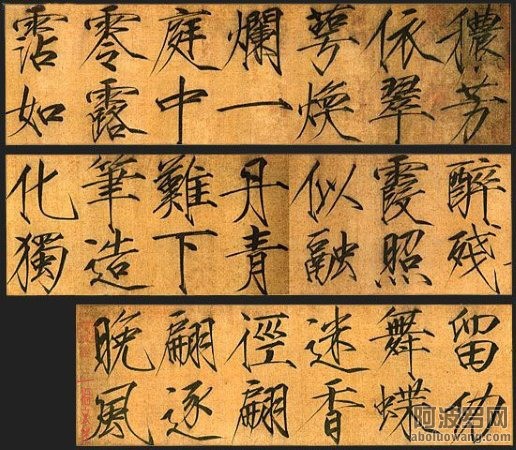 穠芳
依翠
萼煥
爛一
庭中
零露
霑如
醉残
霞照
似融
丹青
難下
筆造
化獨
留功
舞蝶
迷香
徑翩
翩逐
晚風
阿波罗网
aboluowang.com